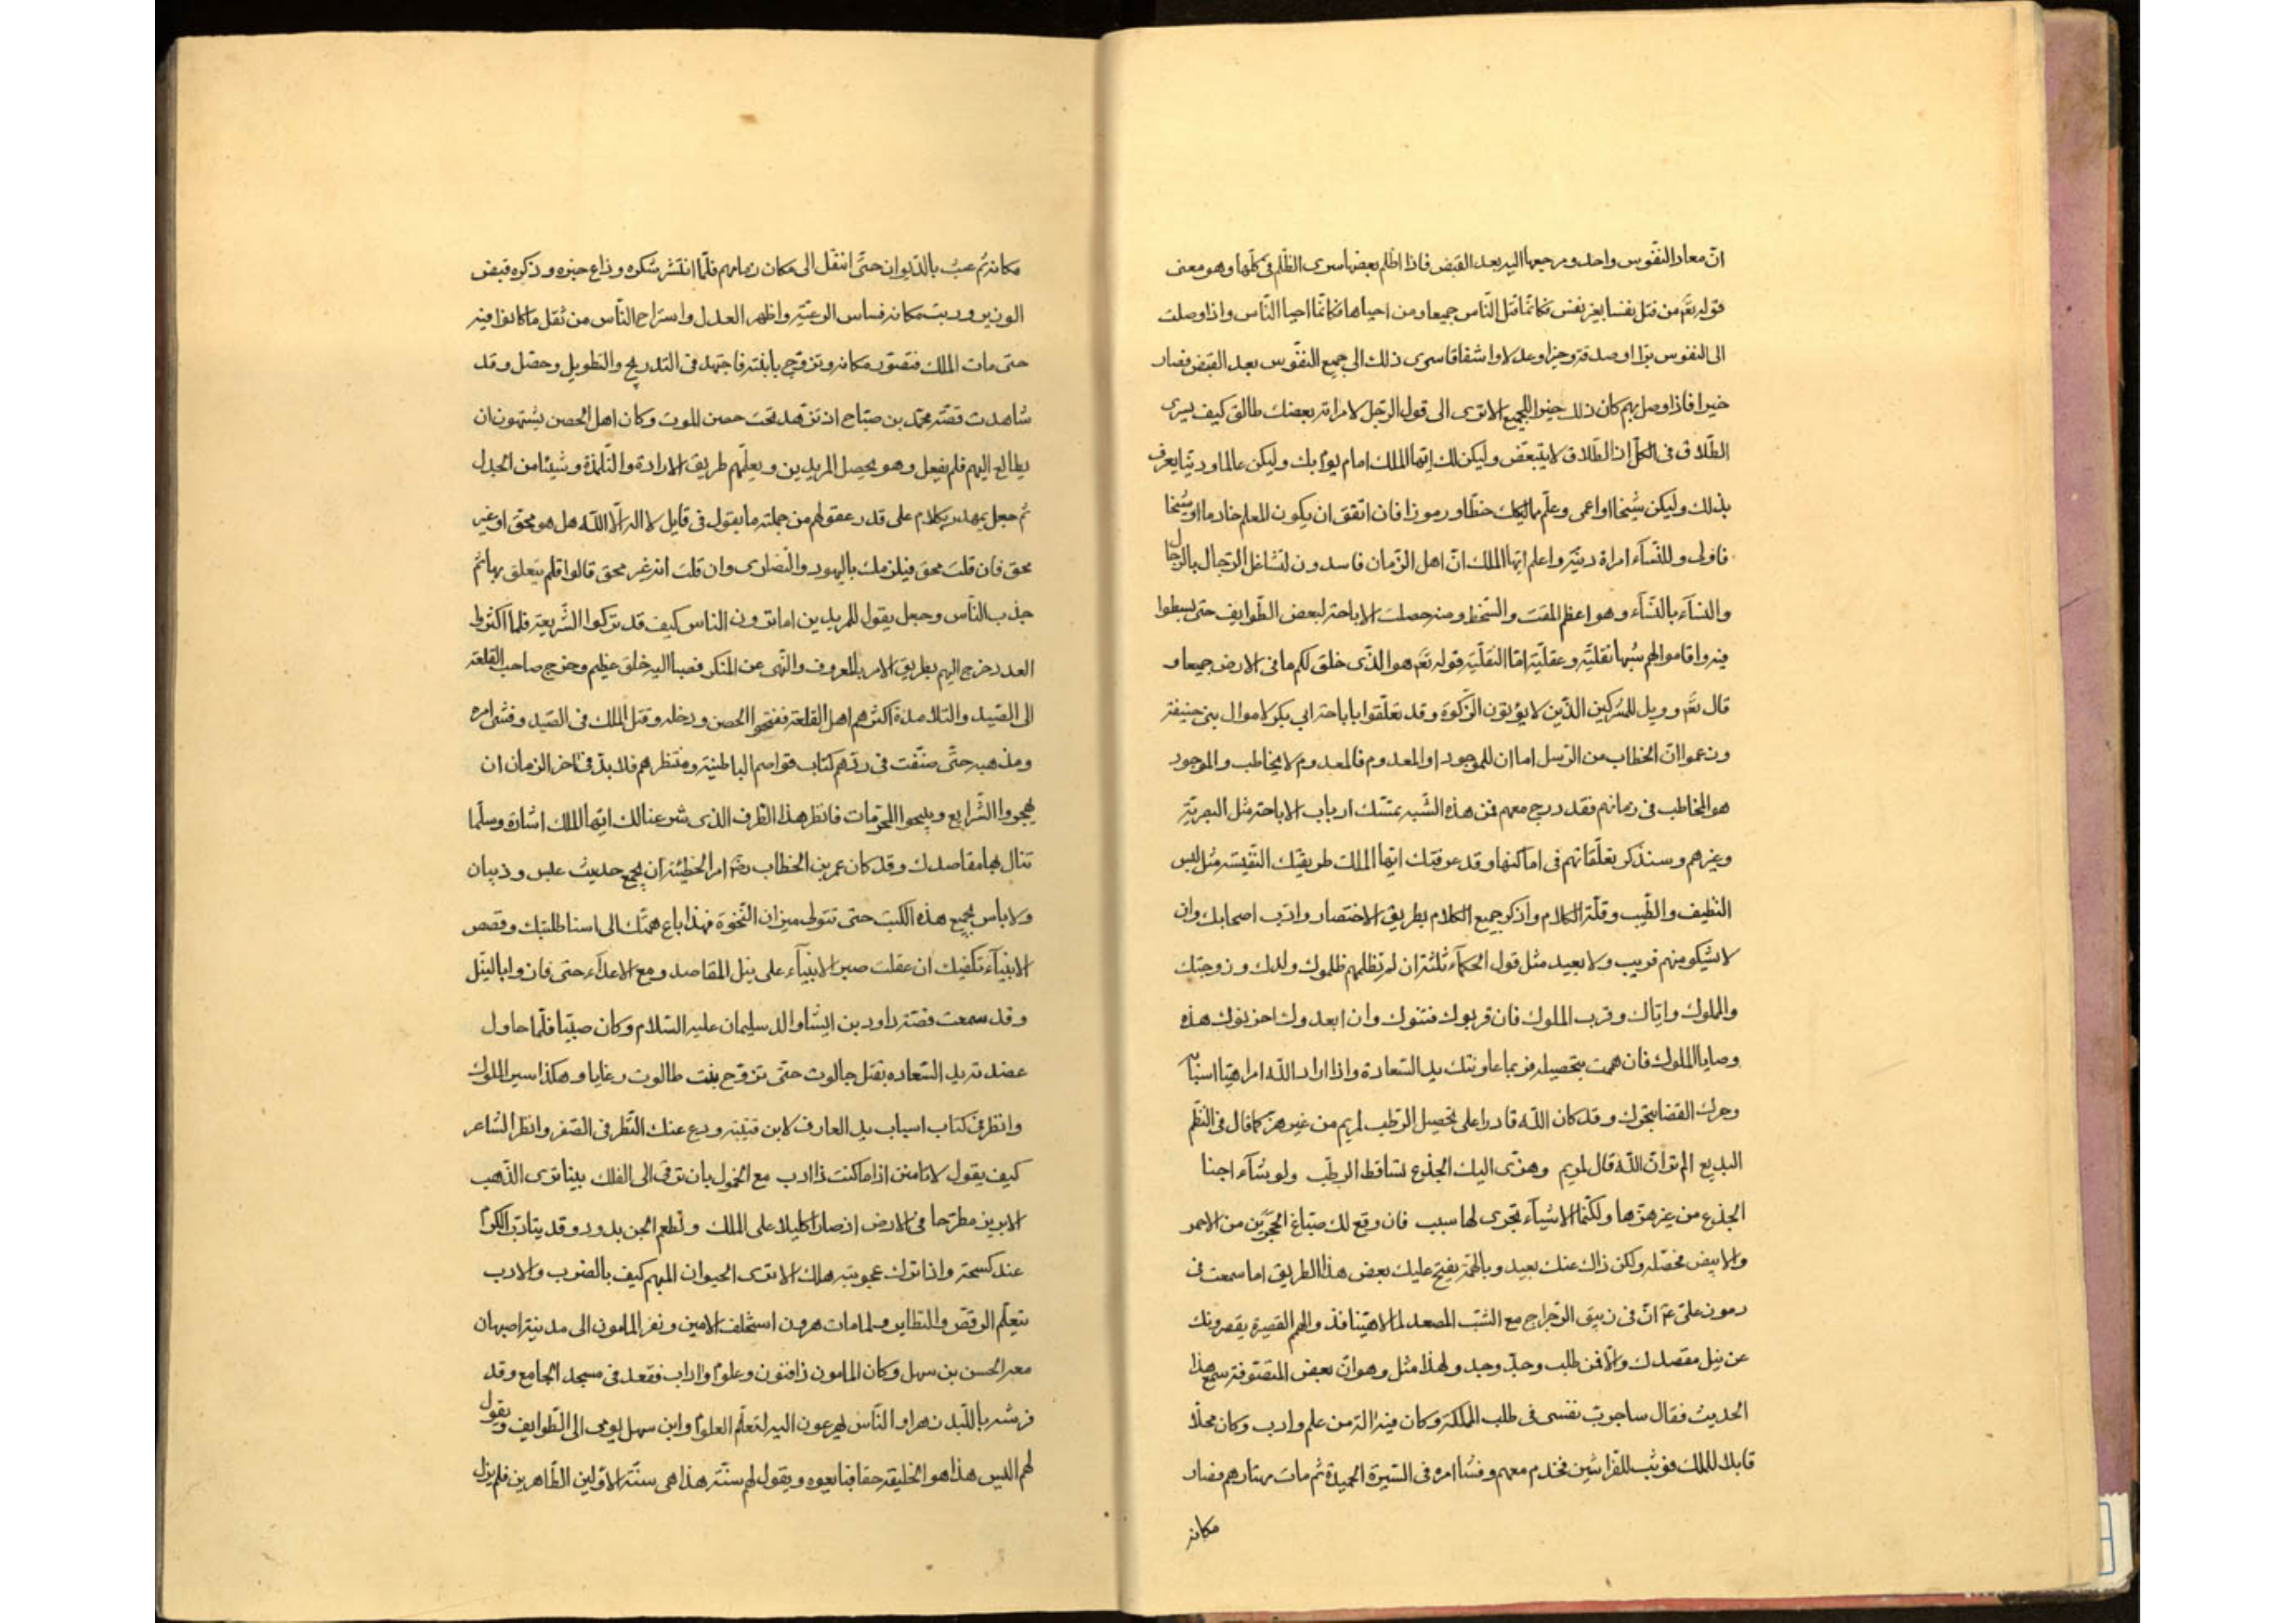 انّ معاد النفوس واحد ومرجعها اليه بعد القبض فاذا اظلم بعضها سرى الظلم فى كلّها وهو معنى
قوله تعَ من قتل نفسا بغير نفس فكانّما قتل النّاس جميعا ومن احياها فكانّما احيا النّاس واذا وصلت
الى النفوس برّا او صدقة وخيرا وعدلا واشفاقا سرى ذلك الى جميع النفوس بعد القبض فصار
خيرا فاذا وصل بهم كان ذلك خيرا للجميع الا ترى الى قول الرّجل لامراته بعضك طالق كيف يسرى
الطّلاق فى الكلّ اذ الطّلاق لا يتبعّض وليكن لك ايّها الملك امام يؤم بك وليكن عالما وديّنا يعرف
بذلك وليكن شيخا او اعمى وعلّم مماليكك خطّا ورموزا فان اتفق ان يكون المعلم خادما او شيخا
فاولى وللنّساء امراة ديّنة واعلم ايّها الملك انّ اهل الزّمان فاسدون لتشاغل الرّجال بالرّجال
والنساء بالنّساء وهو اعظم المقت والسّخط ومنه حصلت الاباحة لبعض الطّوايف حتى بسطوا
فيه واقاموا لهم شبها نقليّة وعقليّة امّا النّقليّة قوله تعَ هو الّذى خلق لكم ما فى الارض جميعا و
قال تعَ وويل للمشركين الّذين لا يؤتون الزّكوة وقد تعلّقوا باباحة ابي بكر لاموال بنى حنيفة
وزعموا انّ الخطاب من الرّسل اما ان للموجود او المعدوم فالمعدوم لا يخاطب والموجود
هو المخاطب فى زمانهم فقد درج معهم فمن هذه الشّبه تمسّك ارباب الاباحة مثل
وغيرهم وسنذكر تعلّقاتهم فى اماكنها وقد عرفتك ايّها الملك طريقتك النّفيسة مثل لبس
النّظيف والطّيب وقلّة الكلام واذكر جميع الكلام بطريق الاختصار وادّب اصحابك وان
لا يشكو منهم قريب ولا بعيد مثل قول الحكماء ثلثة ان لم تظلمهم ظلموك ولدك وزوجتك
والملوك وايّاك وقرب الملوك فان قربوك فتنوك وان ابعدوك احزنوك هذه
وصايا الملوك فان همت بتحصيله فربما عاونتك يد السّعادة واذا اراد اللّه امرا هيّا اسبابه
وحرك القضا بنحوك وقد كان اللّه قادرا على تحصيل الرّطب لمريم من غير هزّ كما قال فى النّظم
البديع الم تر انّ اللّه قال لمريم وهزّى اليك الجذع تساقط الرطب ولو شاء اجنا
الجذع من غير هزّها ولكنّما الاشياء تجرى لها سبب فان وقع لك صبّاغ الحجرين من الاحمر
والابيض فحصّله ولكن ذاك عنك بعيد وبالهمّة يفتح عليك بعض هذا الطريق اما سمعت فى
رموز على عَم انّ فى زيبق الرّجراج مع الشبّ المصعد لمالا هيّنا فذ والهمم القصيرة يقصرونك
عن نيل مقصدك والّا فمن طلب وجدّ وجد ولهذا مثل وهو انّ بعض المتصوّفة سمع هذا
الحديث فقال ساجرب نفسى فى طلب المملكة وكان فيه الة من علم وادب وكان محلّا
قابلا للملك فوثب للفرّاشين فخدم معهم وفشا امره فى السّيرة الحميدة ثم مات مهتارهم فصار
مكانه
مكانه ثم عبث بالدّيوان حتّى انتقل الى مكان زمامهم فلمّا انتشر شكره وذاع خبره وذكره قبض
الوزير ورتبت مكانه فساس الرعيّة واظهر العدل واستراح النّاس من ثقل ما كانوا فيه
حتى مات الملك فتصوّر مكانه وتزوّج بابنته فاجتهد فى التدريج والتطويل وحصّل وقد
شاهدت قصّة محمّد بن صبّاح اذ تزهّد تحت حصن الموت وكان اهل الحصن يشتهون ان
يطالع اليهم فلم يفعل وهو يحصل المريدين ويعلّمهم طريق الارادة والتلمذة وشيئا من الجدل
ثم جعل يهديهم بكلام على قدر عقولهم من جملته ما يقول فى قايل لا اله الّا اللّه هل هو محق او غير
محق فان قلت محق فيلزمك باليهود والنّصارى وان قلت انه غير محق قالوا فلم يتعلق بها ثم
جذب النّاس وجعل يقول للمريدين اما ترون الناس كيف قد تركوا الشّريعة فلما اكثروا
العدد خرج اليهم بطريق الامر بالمعروف والنّهى عن المنكر فصبا اليه خلق عظيم وخرج صاحب القلعة
الى الصّيد والتلامذة اكثرهم اهل القلعة ففتحوا الحصن ودخله وقتل الملك فى الصّيد وفشى امره
ومذهبه حتّى صنّفت فى ردّهم كتاب قواصم الباطنية ومنتظرهم فلا بدّ فى اخر الزمان ان
يهجروا الشّرايع ويبيحوا المحرّمات فانظر هذا الظرف الذى شرعنا لك ايّها الملك اشارة وسلّما
تنال بها مقاصدك وقد كان عمر بن الخطاب رضَ امر الحطيئة ان يجمع حديث عبس وذبيان
ولا باس بجميع هذه الكتب حتى تتولى ميزان النّخوة فهذا باع همّتك الى اسنا طلبتك وقصص
الانبياء تكفيك ان عقلت صبر الانبياء على نيل المقاصد ومع الاعداء حتى فازوا بالنّيل
وقد سمعت قصّة داود بن ايشا والد سليمان عليه السّلام وكان صبيّا فلمّا حاول
عضدته يد السّعاده بقتل جالوت حتى تزوّج بنت طالوت رغايا وهكذا سير الملوك
وانظر فى كتاب اسباب يد العارف لابن قتيبة ودع عنك النّظر فى الصّفر وانظر الشاعر
كيف يقول لا تامنن اذا ما كنت ذا ادب مع الخمول بان ترقى الى الفلك بينا ترى الذّهب
الابريز مطرّحا فى الارض اذ صار اكليلا على الملك وتطعم الجن بدود وقد يتادّب الكرم
عند كسحه واذا ترك عجوبته هلك الا ترى الحيوان المبهم كيف بالضرب والادب
يتعلّم الرقص والتطاير ولما مات هرون استخلف الامين ونفر المامون الى مدينة اصبهان
معه الحسن بن سهل وكان المامون ذا فنون وعلوم واداب فقعد فى مسجد الجامع وقد
فرشه باللّبد نهرا والنّاس يهرعون اليه لتعلّم العلوم وابن سهل يومى الى الطّوايف ويقول
لهم اليس هذا هو الخليفة حقا فتابعوه ويقول لهم سنّة هذا هى سنّة الاوّلين الطّاهرين فلم يزل